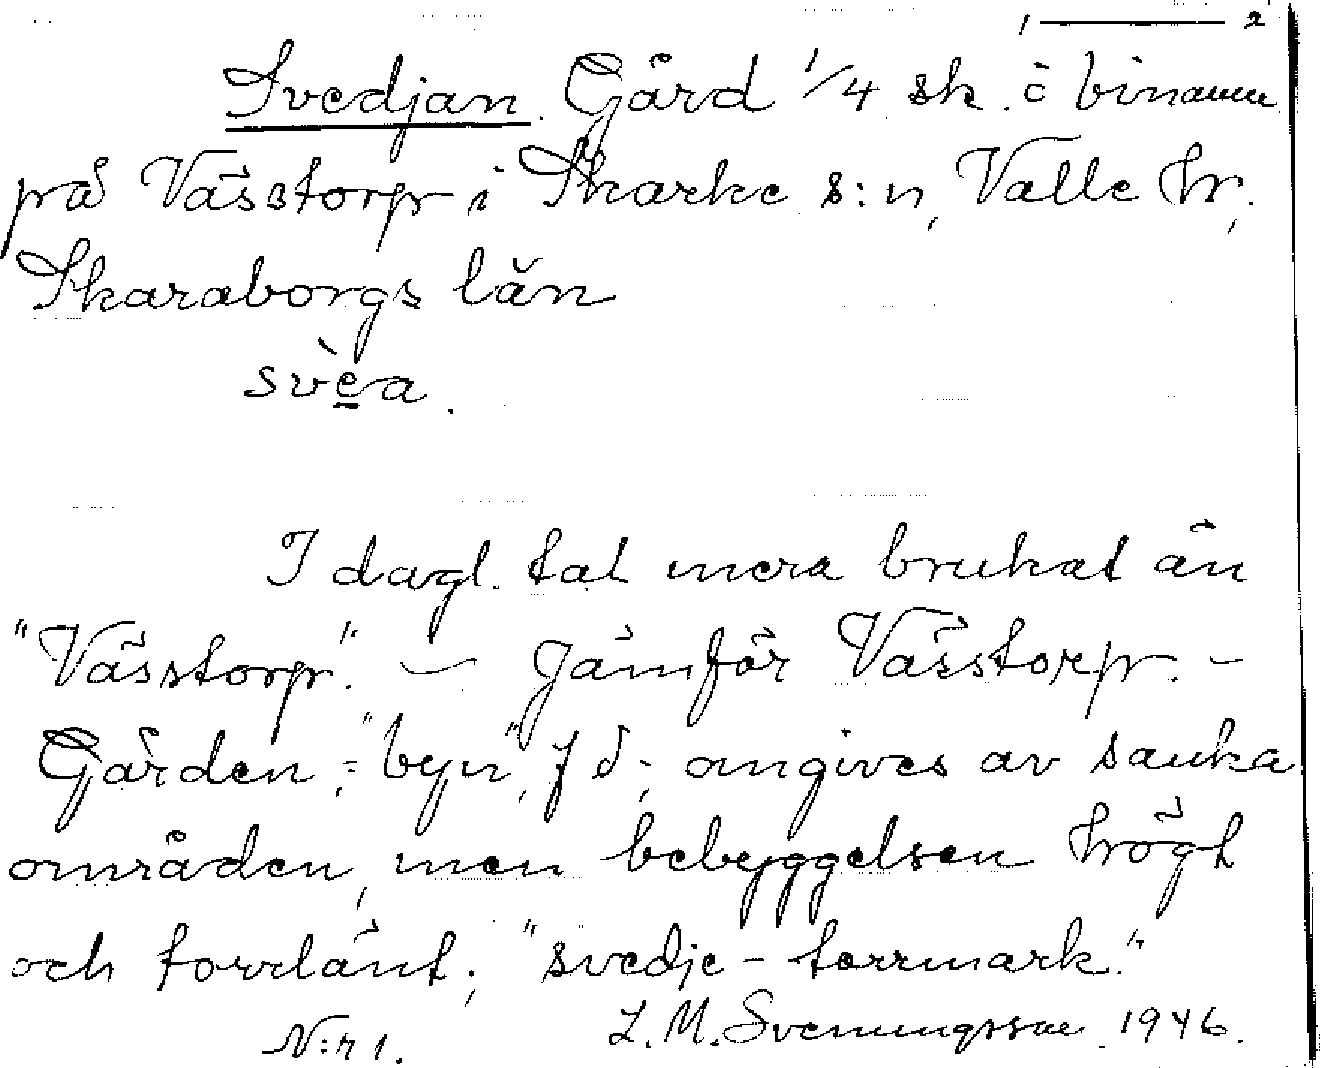 1 — 2
Svedjan. Gård 1/4 sk. o binamn
på Västorp i Skarke s:n, Valle hr,
Skaraborgs län
svèa.
I dagl. tal mera brukat än
"Västorp". — Jämför Västorp. —
Gården, "byn", f d, omgives av sanka
områden, men bebyggelsen högt
och torrlänt; "svedje-torrmark."
N:r 1.
L. M. Svenungsson 1946.